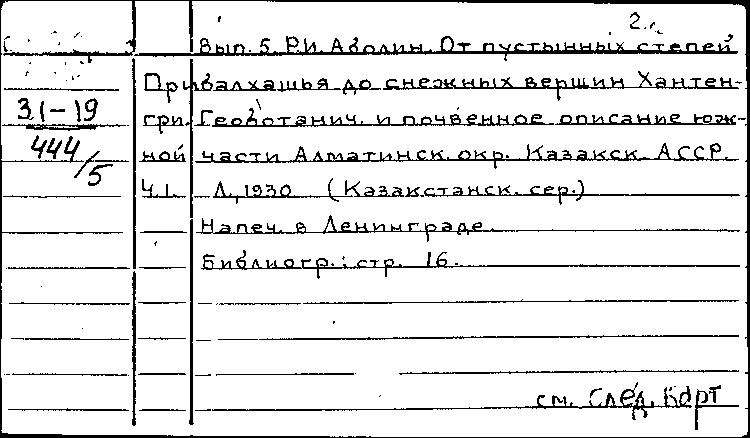 2.
Вып. 5. Р.И. Аболин. От пустынных степей
Прибалхашья до снежных вершин Хантен-
гри. Геоботанич. и почвенное описание юж-
ной части Алматинск. окр. Казакск. АССР.
Ч.I. Л., 1930 (Казакстанск. сер.)
Напеч. в Ленинграде.
Библиогр.: стр. 16.
31-19
444/5
см. след. карт